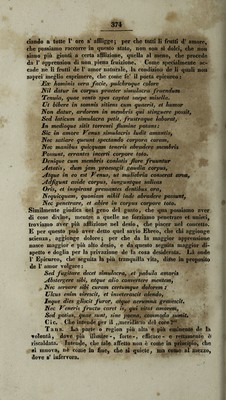 374
ciando a tutte l' ore s' affligge; per che tutti li frutti d' amore,
che possiamo raccorre in questo stato, non son sì dolci, che non
siano più gionti a certa afflizione, quella al meno, che procede
da l' apprension di una piena fruizione. Come specialmente ac-
cade ne li frutti de l' amor naturale, la condizion de li quali non
saprei meglio esprimere, che come fe' il poeta epicureo:
Ex hominis vero facie, pulchroque colore
Nil datur in corpus praeter simulacra fruendum
Tenuia, quae vento spes captat saepe misella.
Ut bibere in somnis sitiens cum quaerit, et humor
Non datur, ardorem in membris qui stinguere possit,
Sed laticum simulacra petit, frustraque laborat,
In medioque sitit torrenti flumine potans:
Sic in amore Venus simulacris ludit amantis,
Nec satiare queunt spectando corpora coram,
Nec manibus quicquam teneris abradere membris
Possunt, errantes incerti corpore toto.
Denique cum membris conlatis flore fruuntur
Aetatis, dum jam praesagit gaudia corpus,
Atque in eo est Venus, ut muliebria conserat arva,
Adfigunt avide corpus, junguntque salivas
Oris, et inspirant pressantes dentibus ora,
Nequicquam, quoniam nihil inde abradere possunt,
Nec penetrare, et abire in corpus corpore toto.
Similmente giudica nel geno del gusto, che qua possiamo aver
di cose divine, mentre a quelle ne forziamo penetrare et unirci,
troviamo aver più afflizione nel desio, che piacer nel concetto.
E per questo può aver detto quel savio Ebreo, che chi aggiunge
scienza, aggiunge dolore; per che da la maggior apprensione
nasce maggior e più alto desio, e da questo seguita maggior di-
spetto e doglia per la privazione de la cosa desiderata. Là onde
l' Epicureo, che seguita la più tranquilla vita, disse in proposito
de l' amor volgare:
Sed fugitare decet simulacra, et pabula amoris
Abstergere sibi, atque alio convertere mentem,
Nec servare sibi curam certumque dolorem:
Ulcus enim virescit, et inveterascit alendo,
Inque dies gliscit furor, atque aerumna gravescit.
Nec Veneris fructu caret is, qui vitat amorem,
Sed potius, quae sunt, sine poena, commoda sumit.
Cic. Che intende per il „meridiano del core"?
Tans. La parte o region più alta e più eminente de la
volontà, dove più illustre-, forte-, efficace- e rettamente è
riscaldata. Intende, che tale affetto non è come in principio, che
si muova, nè come in fine, che si quiete, ma come al mezzo,
dove s' infervora.